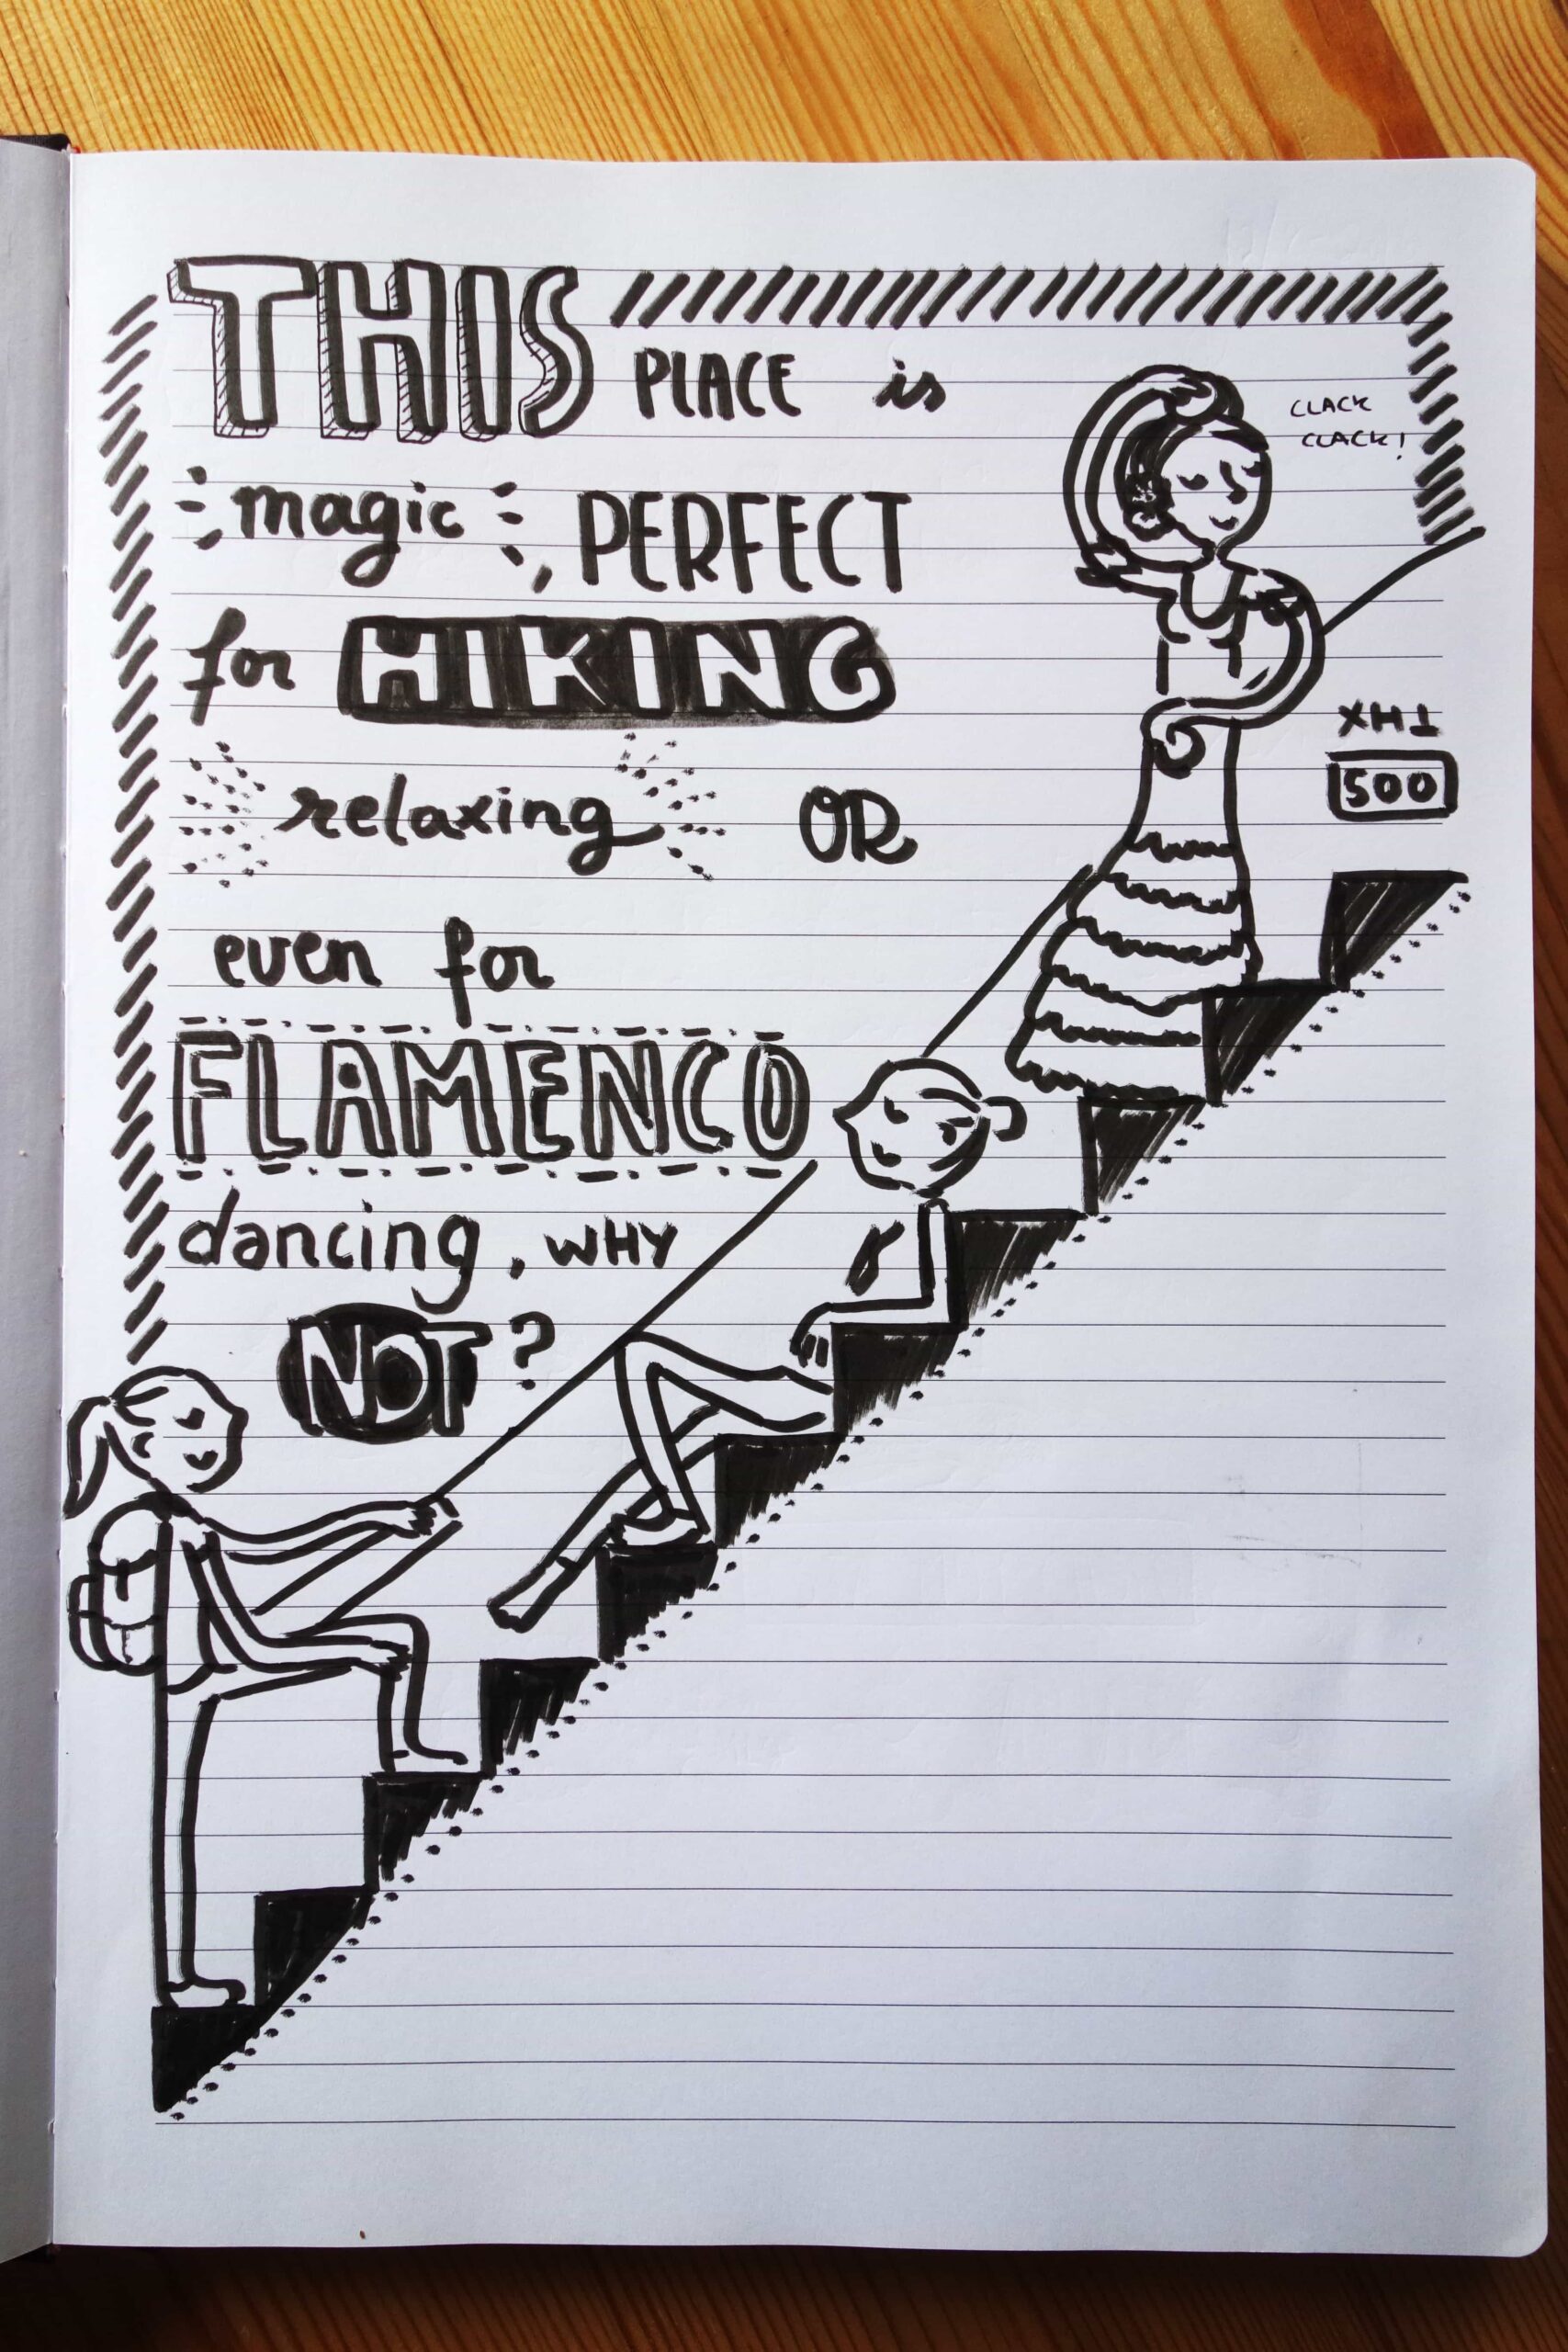 THIS PLACE is
magic, PERFECT
for HIKING
relaxing OR
even for
FLAMENCO
dancing, WHY
NOT?
CLACK
CLACK!
THX
500